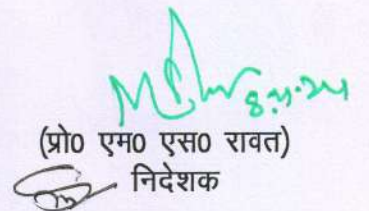 8.11.24
(प्रो0 एम0 एस0 रावत)
निदेशक